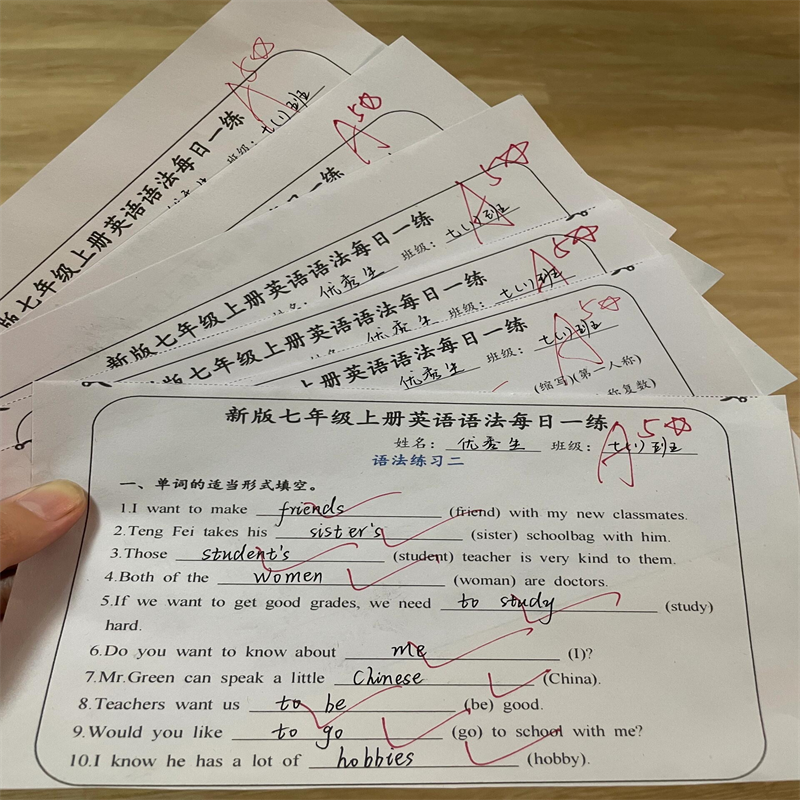 A5☆
版七年级上册英语语法每日一练
班级: 七(1)班
A5☆
一练
A5☆
新版七年级上册英语语法每日一练
姓名: 优秀生 班级: 七(1)班
A5☆
版七年级上册英语语法每日一练
优秀生 班级: 七(1)班
A5☆
上册英语语法每日一练
优秀生 班级: 七(1)班
(缩写)(第一人称)
称复数)
新版七年级上册英语语法每日一练
A5☆
姓名: 优秀生 班级: 七(1)班
语法练习二
一、单词的适当形式填空。
1.I want to make friends (friend) with my new classmates.
2.Teng Fei takes his sister's (sister) schoolbag with him.
3.Those student's (student) teacher is very kind to them.
4.Both of the women (woman) are doctors.
5.If we want to get good grades, we need to study (study)
hard.
6.Do you want to know about me (I)?
7.Mr.Green can speak a little Chinese (China).
8.Teachers want us to be (be) good.
9.Would you like to go (go) to school with me?
10.I know he has a lot of hobbies (hobby).